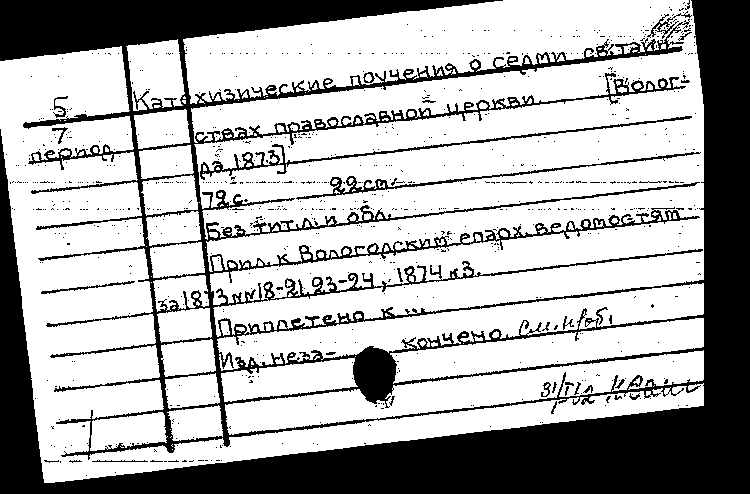 5
7
период
Катехизические поучения о седми св. таин-
ствах православной церкви. [Волог-
да, 1873].
72с. 22см.
Без тит. л. и обл.
Прил. к Вологодским епарх. ведомостям
за 1873 №№18-21, 23-24, 1874 №3.
Приплетено к ...
Изд. неза- кончено. см. н/об.